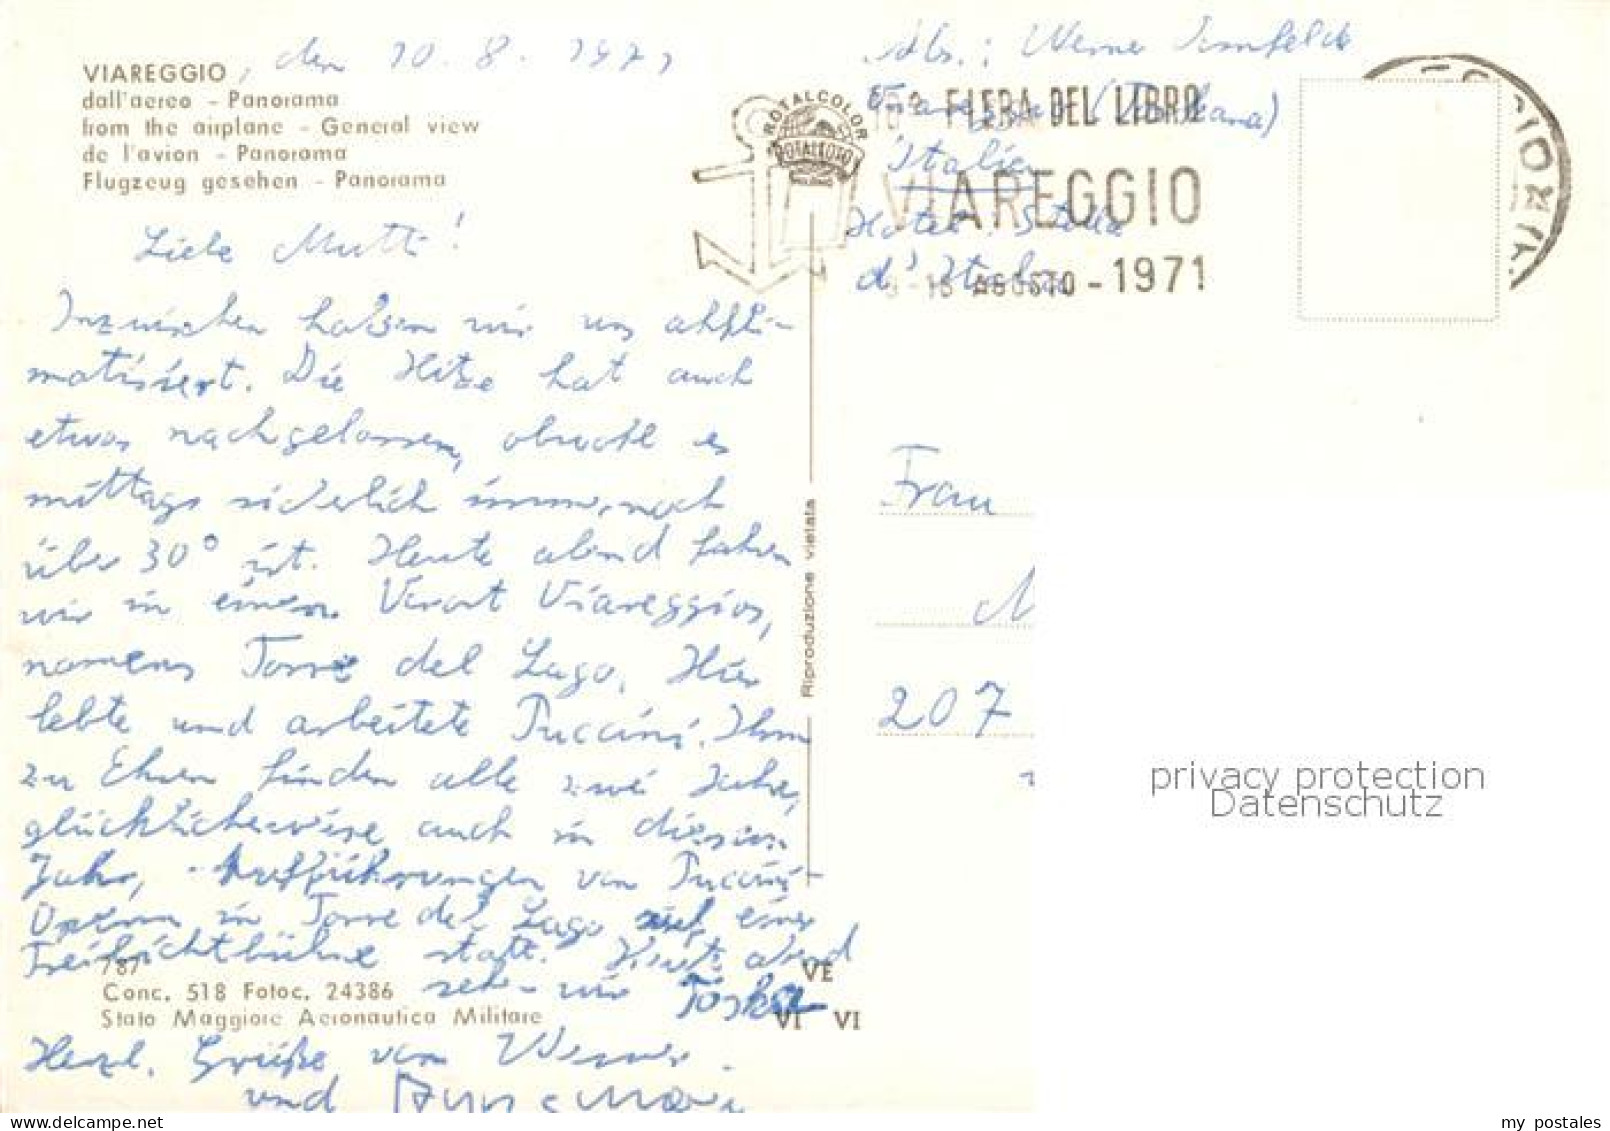 VIAREGGIO, den 10. 8. 1971
dall'aereo - Panorama
from the airplane - General view
de l'avion - Panorama
Flugzeug gesehen - Panorama
Abs.: Werner
(Toskana)
Italien
Hotel Stella
d'Italia
ROTALCOLOR
ROTALFOTO
MILANO
FIERA DEL LIBRO
VIAREGGIO
AGOSTO - 1971
Liebe Mutti!
Inzwischen haben wir uns akkli-
matisiert. Die Hitze hat auch
etwas nachgelassen, obwohl es
mittags sicherlich immer noch
über 30° ist. Heute abend fahren
wir in einen Vorort Viareggios,
namens Torre del Lago. Hier
lebte und arbeitete Puccini. Ihm
zu Ehren finden alle zwei Jahre,
glücklicherweise auch in diesem
Jahr, Aufführungen von Puccini-
Opern in Torre del Lago auf einer
Freilichtbühne statt. Heute abend
sehen wir Toska
Herzl. Grüße von Werner
und
787
Conc. 518 Fotoc. 24386
Stato Maggiore Aeronautica Militare
VE
VI VI
Riproduzione vietata
Frau
M
207
privacy protection
Datenschutz
my postales